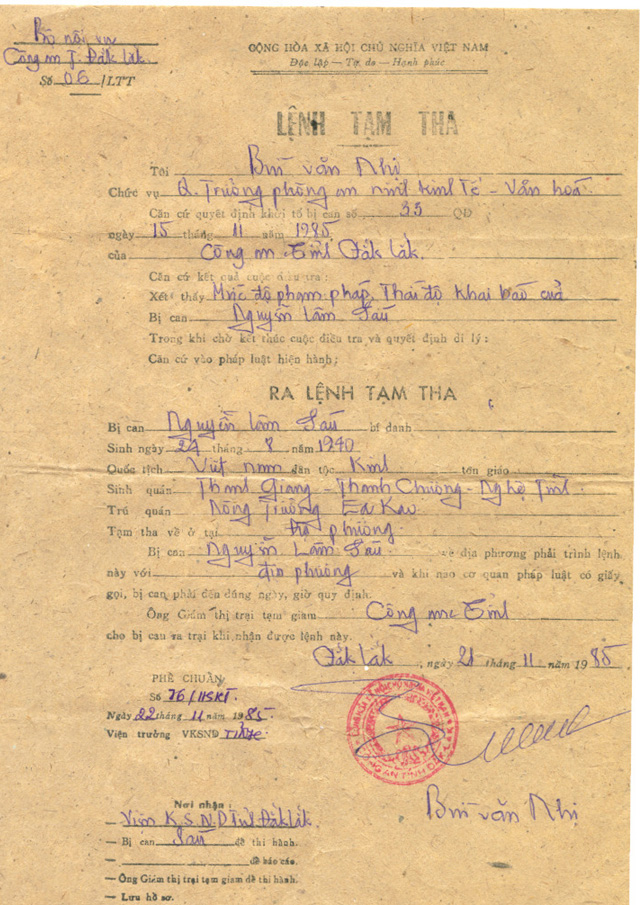 Bộ nội vụ
Công an T. Đắk Lắk.
Số 06/LTT
CỘNG HÒA XÃ HỘI CHỦ NGHĨA VIỆT NAM
Độc lập — Tự do — Hạnh phúc
LỆNH TẠM THA
Tôi Bùi văn Nhị
Chức vụ Q. Trưởng phòng an ninh kinh tế - Văn hoá.
Căn cứ quyết định khởi tố bị can số 35 QĐ
ngày 15 tháng 11 năm 1985
của Công an Tỉnh Đắk Lắk.
Căn cứ kết quả cuộc điều tra :
Xét thấy Mức độ phạm pháp, Thái độ khai báo của
Bị can Nguyễn Lâm Sáu
Trong khi chờ kết thúc cuộc điều tra và quyết định di lý :
Căn cứ vào pháp luật hiện hành;
RA LỆNH TẠM THA
Bị can Nguyễn Lâm Sáu bí danh
Sinh ngày 27 tháng 8 năm 1940
Quốc tịch Việt nam dân tộc Kinh tôn giáo
Sinh quán Thanh Giang - Thanh Chương - Nghệ Tĩnh.
Trú quán Nông Trường Ea Kao
Tạm tha về ở tại địa phương
Bị can Nguyễn Lâm Sáu về địa phương phải trình lệnh
này với địa phương và khi nào cơ quan pháp luật có giấy
gọi, bị can phải đến đúng ngày, giờ quy định.
Ông Giám thị trại tạm giam Công an Tỉnh
cho bị can ra trại khi nhận được lệnh này.
Đắk Lắk, ngày 21 tháng 11 năm 1985
PHÊ CHUẨN
Số 76/
Ngày 22 tháng 11 năm 1985.
Viện trưởng VKSND
Bùi văn Nhị
Nơi nhận :
— Viện K.S.N.D Tỉnh Đắk Lắk.
— Bị can Sáu để thi hành.
— để báo cáo.
— Ông Giám thị trại tạm giam để thi hành.
— Lưu hồ sơ.